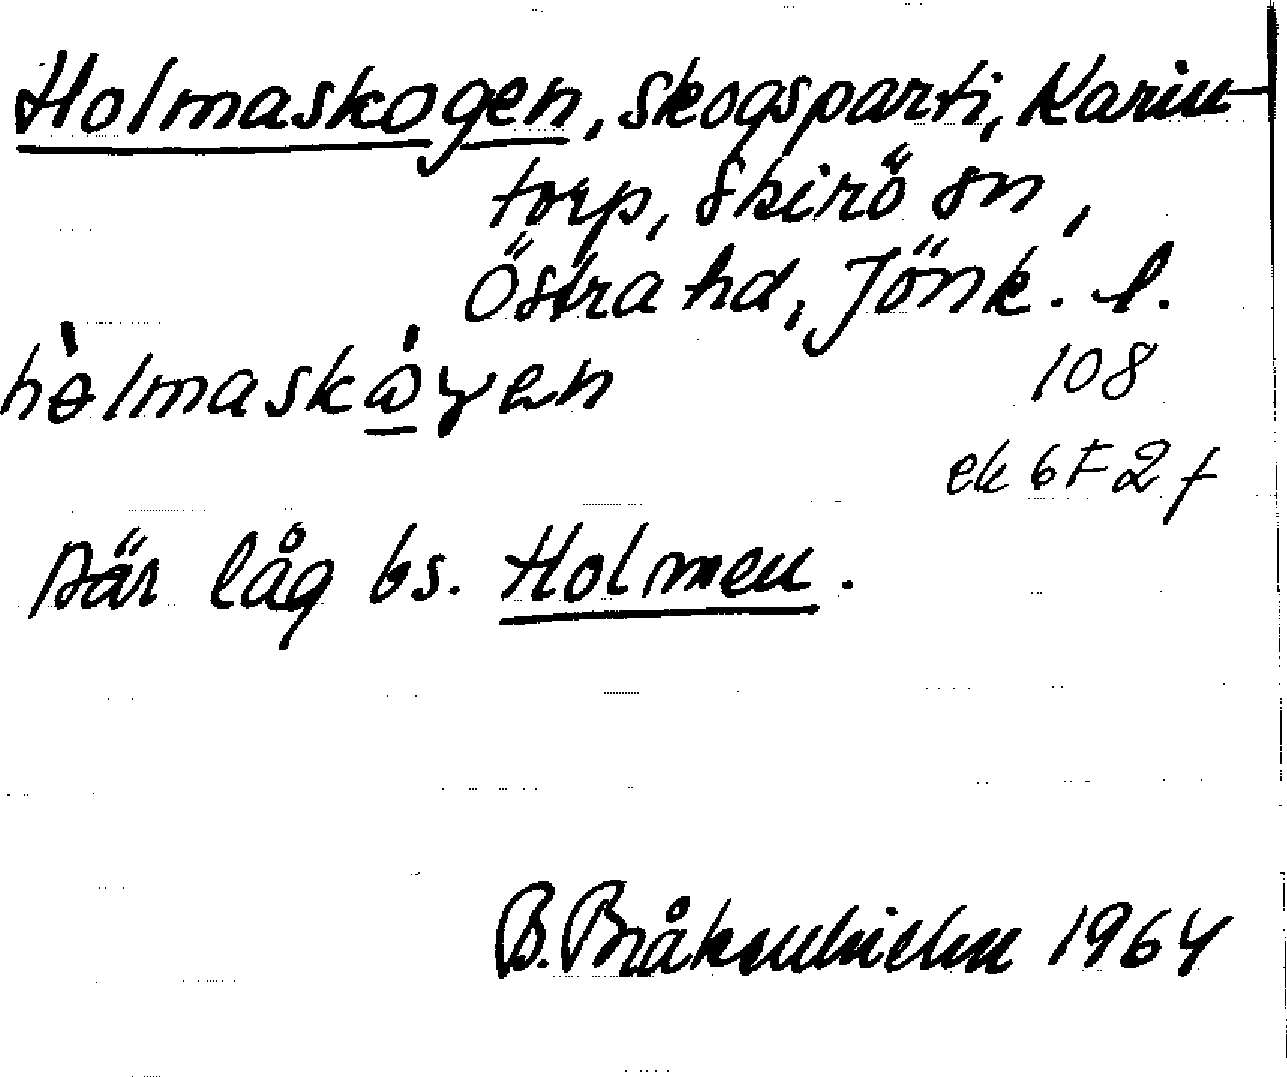 Holmaskogen, skogsparti, Karin-
torp, Skirö sn,
Östra hd, Jönk. l.
hɵ̀lmaskå̲̀gen
108
ek 6F2f
Där låg bs. Holmen.
B. 1964